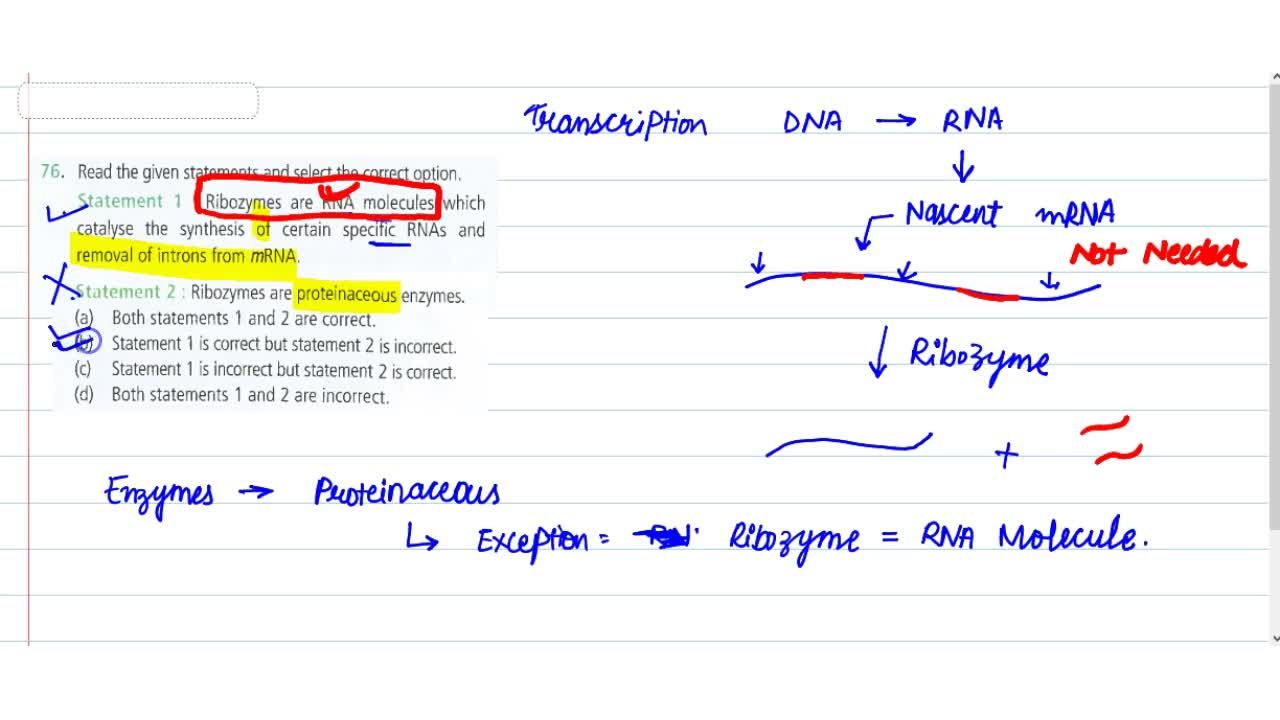 Transcription DNA → RNA
↓
Nascent mRNA
Not Needed
76. Read the given statements and select the correct option.
Statement 1 Ribozymes are RNA molecules which
catalyse the synthesis of certain specific RNAs and
removal of introns from mRNA.
Statement 2 : Ribozymes are proteinaceous enzymes.
(a) Both statements 1 and 2 are correct.
(b) Statement 1 is correct but statement 2 is incorrect.
(c) Statement 1 is incorrect but statement 2 is correct.
(d) Both statements 1 and 2 are incorrect.
↓ Ribozyme
+
Enzymes → Proteinaceous
↳ Exception = Ribozyme = RNA Molecule.